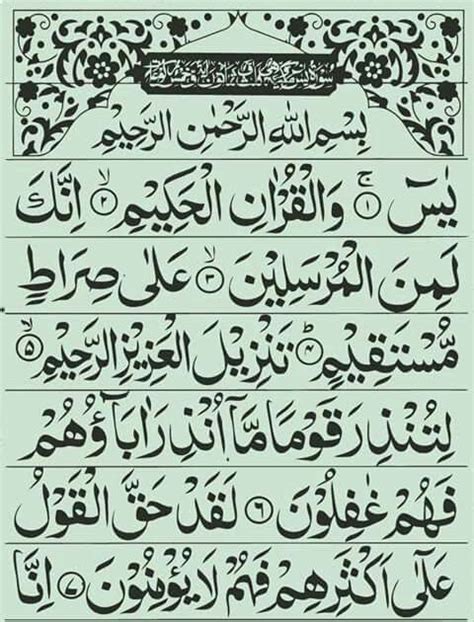 بِسْمِ اللهِ الرَّحْمٰنِ الرَّحِيْمِ
يٰسٓ ۚ ﴿۱﴾ وَالْقُرْاٰنِ الْحَكِيْمِ ۙ ﴿۲﴾ اِنَّكَ
لَمِنَ الْمُرْسَلِيْنَ ۙ ﴿۳﴾ عَلٰى صِرَاطٍ
مُّسْتَقِيْمٍ ؕ ﴿۴﴾ تَنْزِيْلَ الْعَزِيْزِ الرَّحِيْمِ ۙ ﴿۵﴾
لِتُنْذِرَ قَوْمًا مَّاۤ اُنْذِرَ اٰبَآؤُهُمْ
فَهُمْ غٰفِلُوْنَ ﴿۶﴾ لَقَدْ حَقَّ الْقَوْلُ
عَلٰٓى اَكْثَرِهِمْ فَهُمْ لَا يُؤْمِنُوْنَ ﴿۷﴾ اِنَّا